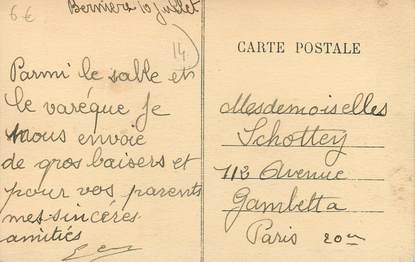 6€
Bernières 10 juillet
14
Parmi le sable et
le varéque je
vous envoie
de gros baisers et
pour vos parents
mes sincères
amitiés
CARTE POSTALE
Mesdemoiselles
Schottey
112 Avenue
Gambetta
Paris 20em